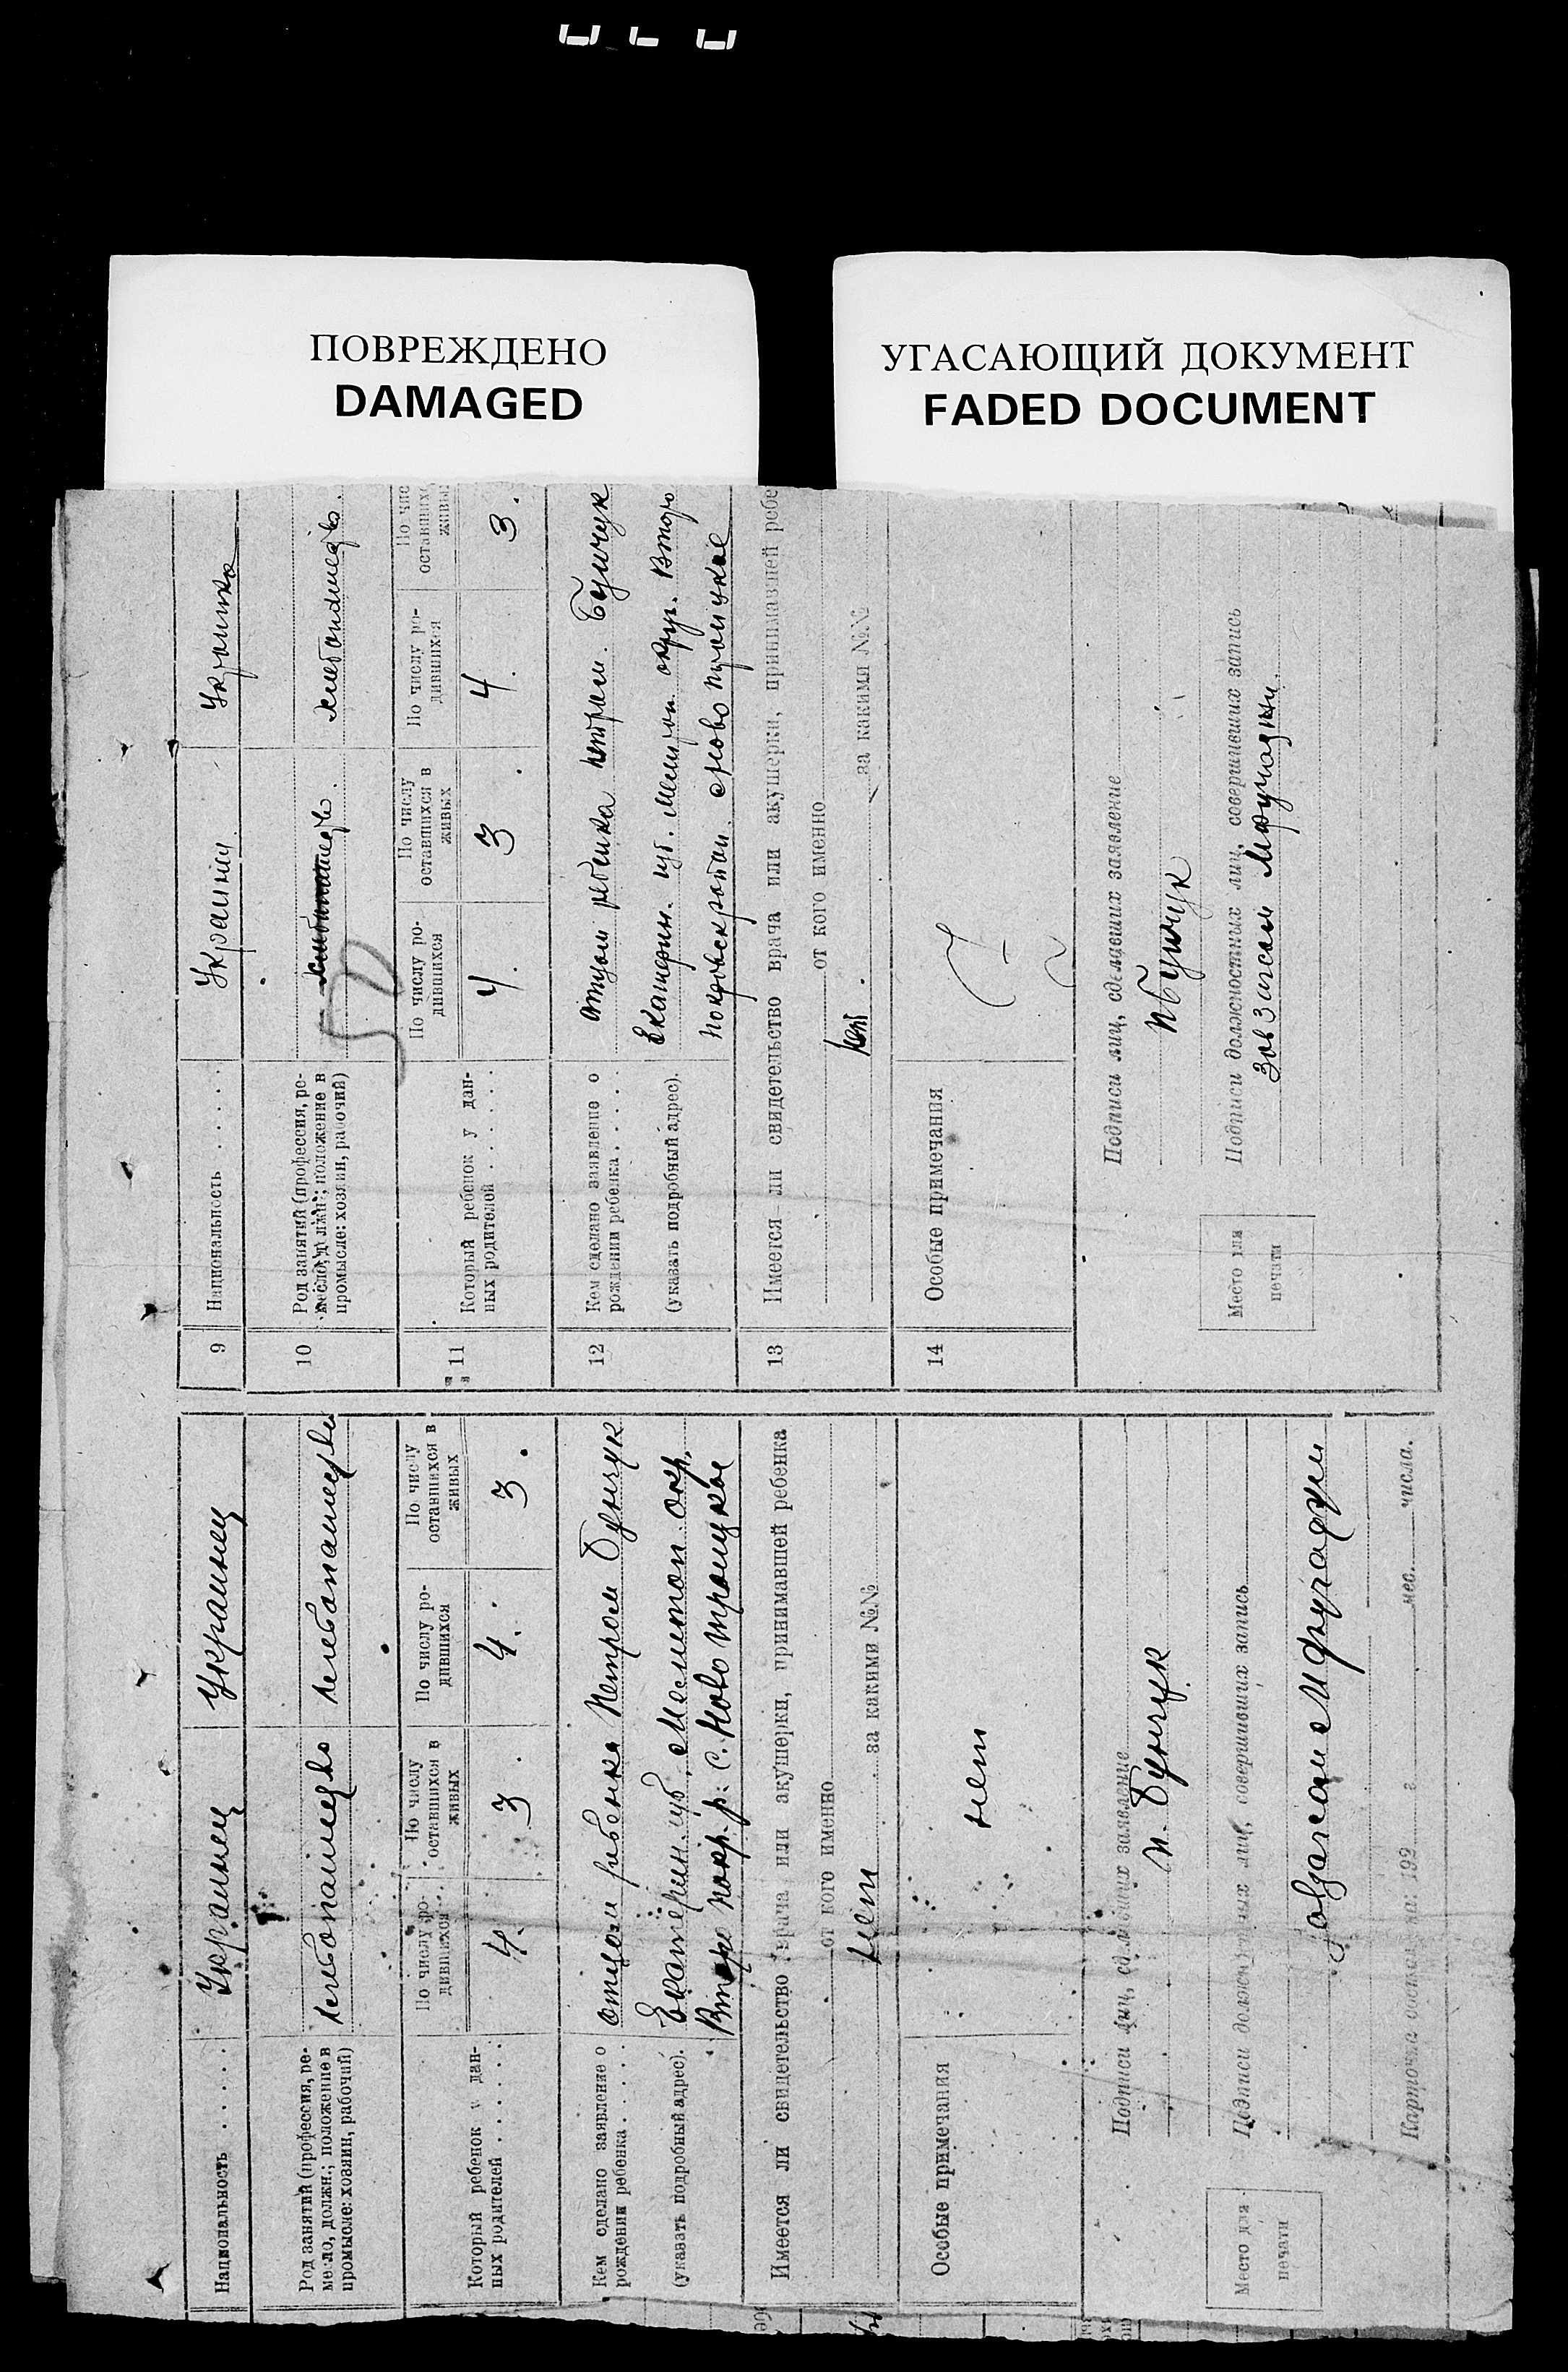 ПОВРЕЖДЕНО
DAMAGED
УГАСАЮЩИЙ ДОКУМЕНТ
FADED DOCUMENT
9 Национальность . . . . . Украинец Украинец
10 Род занятий (профессия, ре-
месло, должн.; положение в
промысле: хозяин, рабочий)
хлебопашество
11 Который ребенок у дан-
ных родителей . . . . . .
По числу ро-
дившихся
4.
По числу
оставшихся в
живых
3.
По числу ро-
дившихся
4.
По числу
оставшихся в
живых
3.
12 Кем сделано заявление о
рождении ребенка . . . . .
(указать подробный адрес).
отцом ребенка Петром Бунчук
Екатерин. губ. Мелитоп. окр.
Второ покр. р. с. Ново троицкое
13 Имеется ли свидетельство врача или акушерки, принимавшей ребенка
от кого именно
нет за какими №№
14 Особые примечания
нет
Подписи лиц, сделавших заявление
п. Бунчук
Подписи должностных лиц, совершивших запись
Место для
печати
Карточка 192 г. мес. числа.
9 Национальность . . . . . Украинец Украинка
10 Род занятий (профессия, ре-
месло, должн.; положение в
промысле: хозяин, рабочий)
11 Который ребенок у дан-
ных родителей . . . . . .
По числу ро-
дившихся
4.
По числу
оставшихся в
живых
3.
По числу ро-
дившихся
4.
По чис
оставшихс
живы
3.
12 Кем сделано заявление о
рождении ребенка . . . . .
(указать подробный адрес).
отцом ребенка петром. Бунчук
Екатерин. губ. Мелитоп. округ. Второ
покровск район. Ново троицкое
13 Имеется ли свидетельство врача или акушерки, принимавшей ребе
от кого именно
нет. за какими №№
14 Особые примечания
Подписи лиц, сделавших заявление
п Бунчук
Подписи должностных лиц, совершивших запись
Зав Загсом
Место для
печати